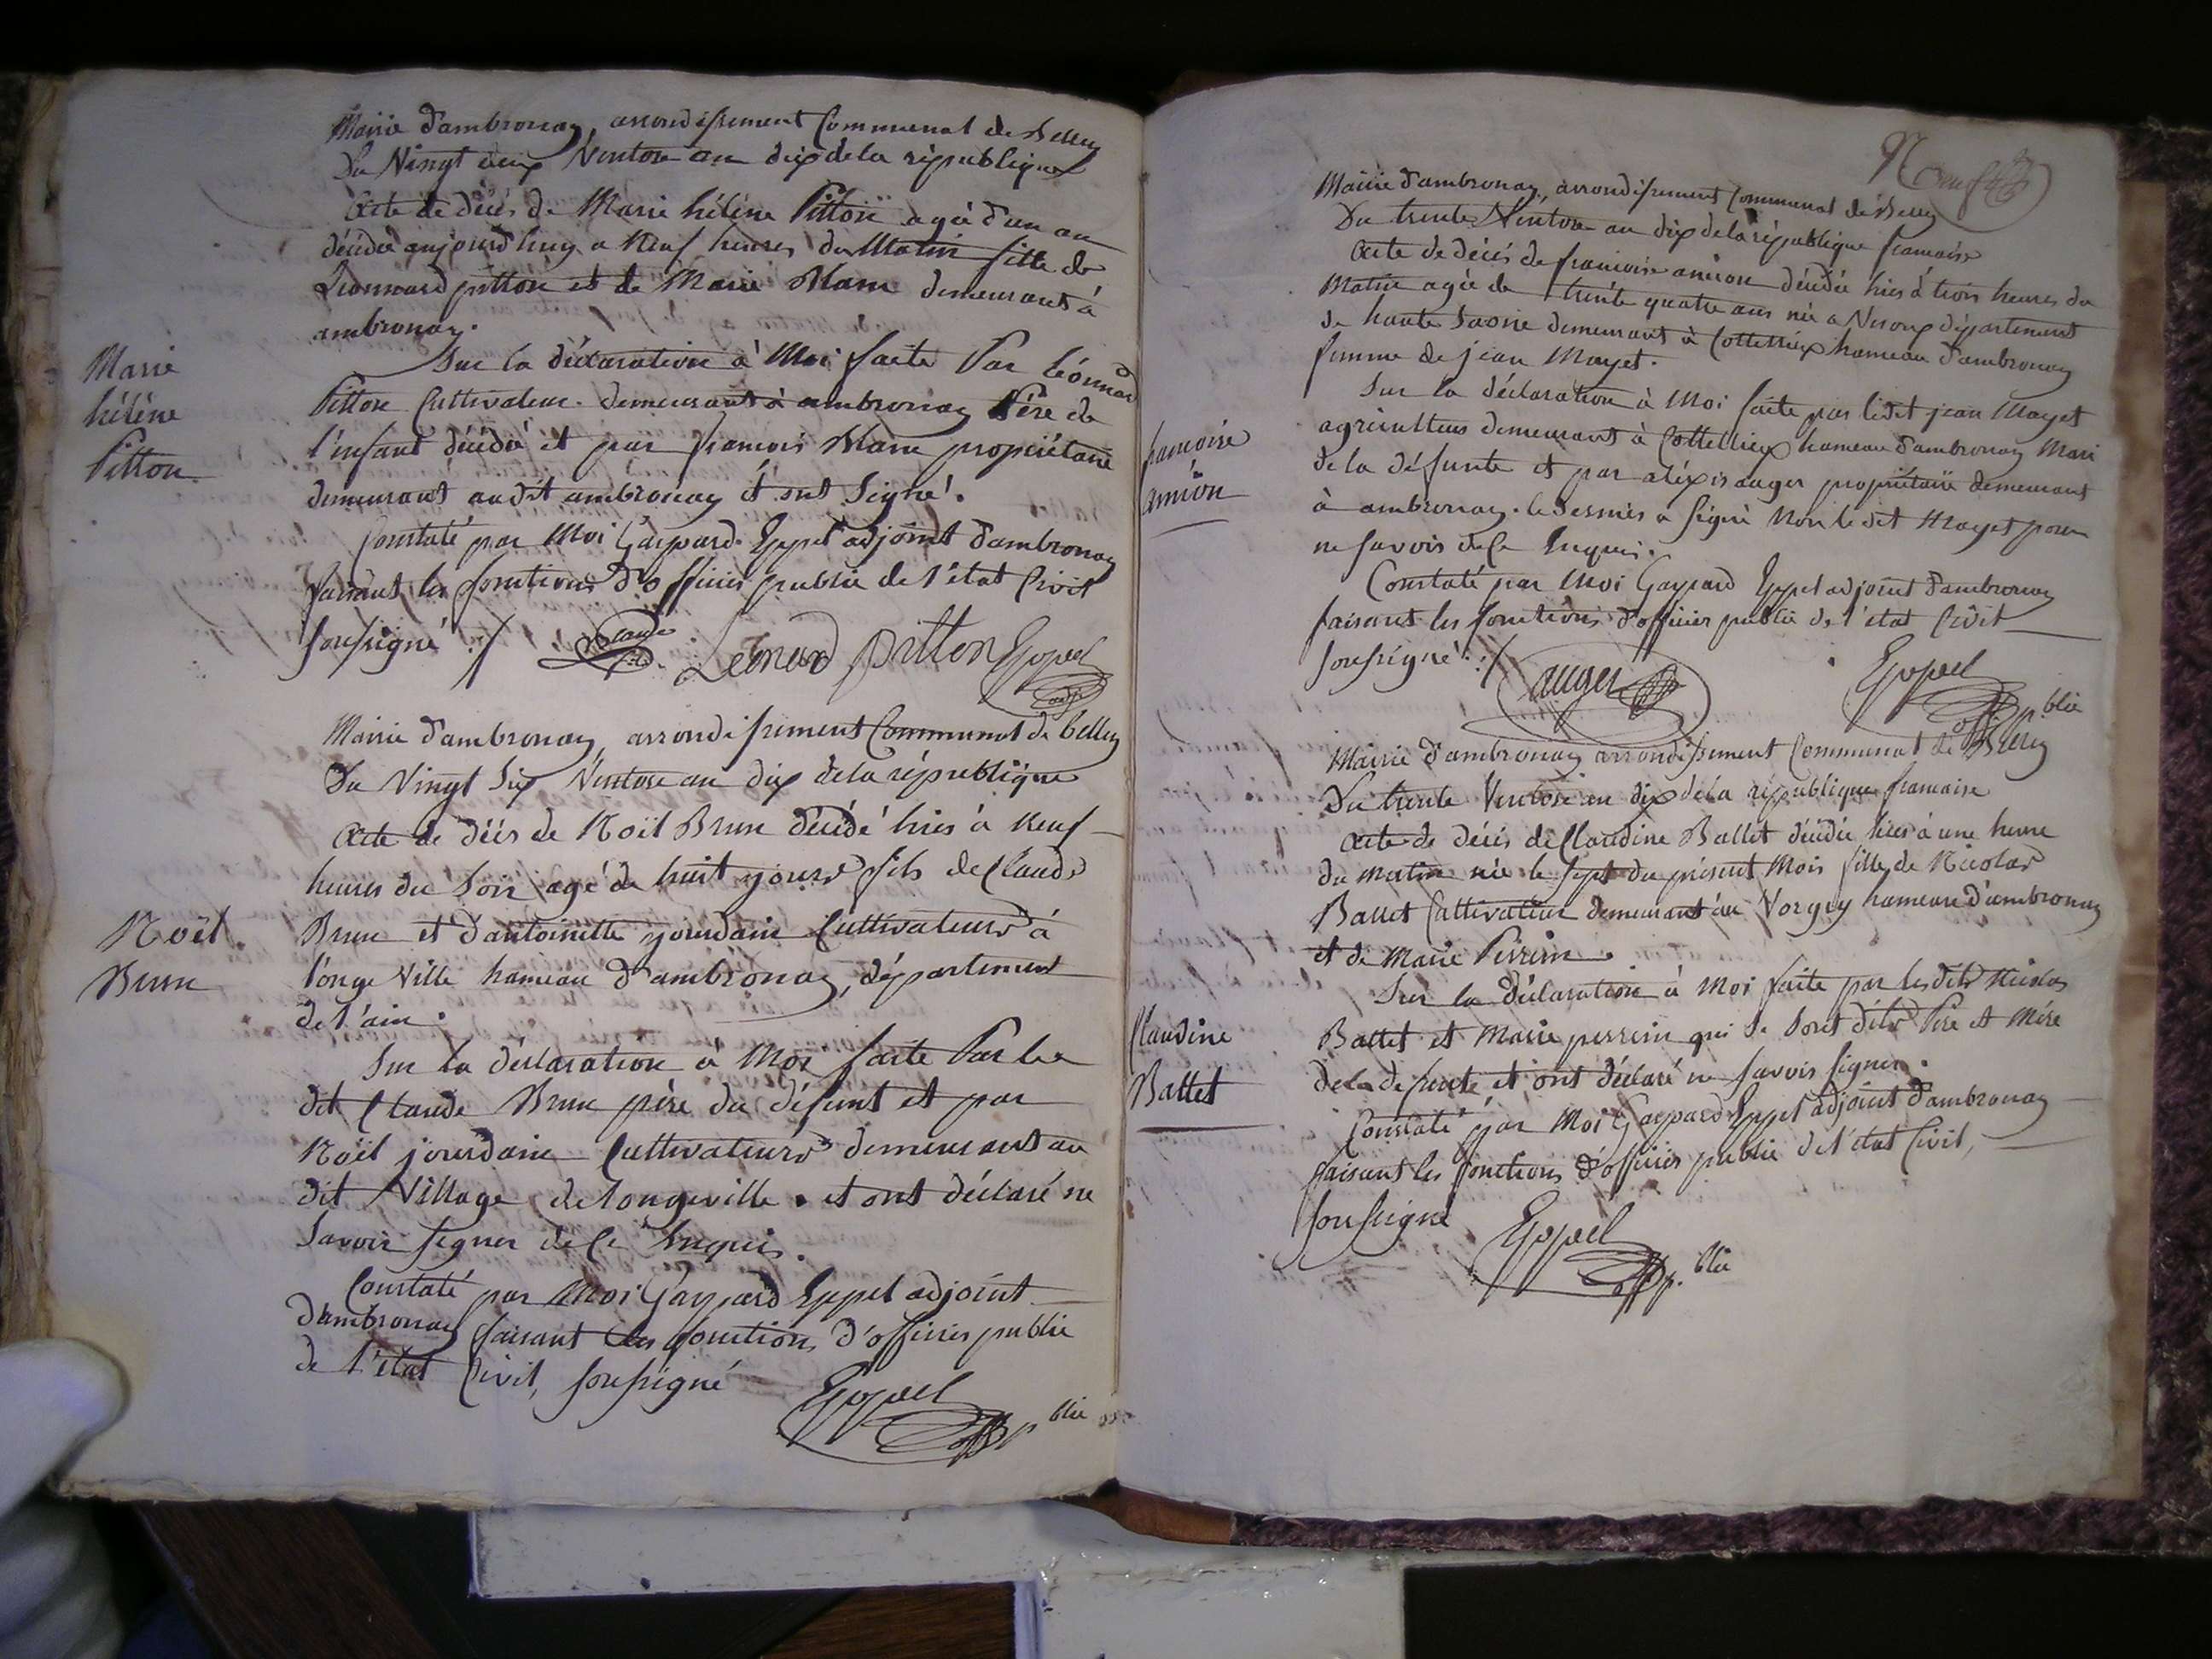 Mairie d'ambronay, arrondissement Communal de Belley
Du Vingt deux Ventose an dix de la république
Acte de décés de Marie hélène Pitton agée d'un an
décédée aujourd'huy a Neuf heures du Matin fille de
Leonnard pitton et de Marie Blanc demeurants à
ambronay.
Sur la déclaration à Moi faite Par Léonnard
Pitton Cultivateur demeurant à ambronay Père de
l'enfant décédé et par francois Blanc propriétaire
demeurant audit ambronay et ont Signé.
Constaté par Moi Gaspard Eppel adjoint d'ambronay
faisant les fonctions d'officier public de l'état Civil
soussigné
Leonard pitton Eppel
Marie
hélène
Pitton
Mairie d'ambronay, arrondissement Communal de belley
Du Vingt Six Ventose an dix de la république
Acte de décés de Noël Brun décédé hier à Neuf
heures du Soir agé de huit jours fils de Claude
Brun et d'antoinette jourdain Cultivateurs à
longe Ville hameau d'ambronay, département
de l'ain.
Sur la déclaration à Moi faite Par le
dit Claude Brun père du défunt et par
Noël jourdain Cultivateurs demeurant au
dit Village de longeville. et ont déclaré ne
Savoir signer de ce Enquis.
Constaté par Moi Gaspard Eppel adjoint
d'ambronay faisant les fonctions d'officier public
de l'état Civil, soussigné
Eppel
off. p. blic
Noël
Brun
Neuf
Mairie d'ambronay, arrondissement Communal de Belley
Du trente Ventose an dix de la république francaise
Acte de décés de francoise décédée hier à trois heures du
Matin agée de trente quatre ans née a département
de haute Saone demeurant à hameau d'ambronay
femme de jean Mayet.
Sur la déclaration à Moi faite par ledit jean Mayet
agriculteur demeurant à hameau d'ambronay Mari
de la défunte et par aléxis auger propriétaire demeurant
à ambronay. le dernier a signé Non le dit Mayet pour
ne savoir de ce Enquis.
Constaté par Moi Gaspard Eppel adjoint d'ambronay
faisant les fonctions d'officier public de l'état Civil
soussigné
auger
Eppel
off. p. blic
francoise
Mairie d'ambronay arrondissement Communal de Belley
Du trente Ventose an dix de la république francaise
Acte de décés de Claudine Ballet décédée hier à une heure
du matin née le sept du présent Mois fille de Nicolas
Ballet Cultivateur demeurant au Vorgey hameau d'ambronay
et de Marie Perrin.
Sur la déclaration à Moi faite par lesdits Nicolas
Ballet et Marie perrin qui Se Sont dits Père et Mère
de la defunte et ont déclaré ne savoir signer.
Constaté par Moi Gaspard Eppel adjoint d'ambronay
faisant les fonctions d'officier public de l'état Civil,
soussigné
Eppel
off. p. blic
Claudine
Ballet